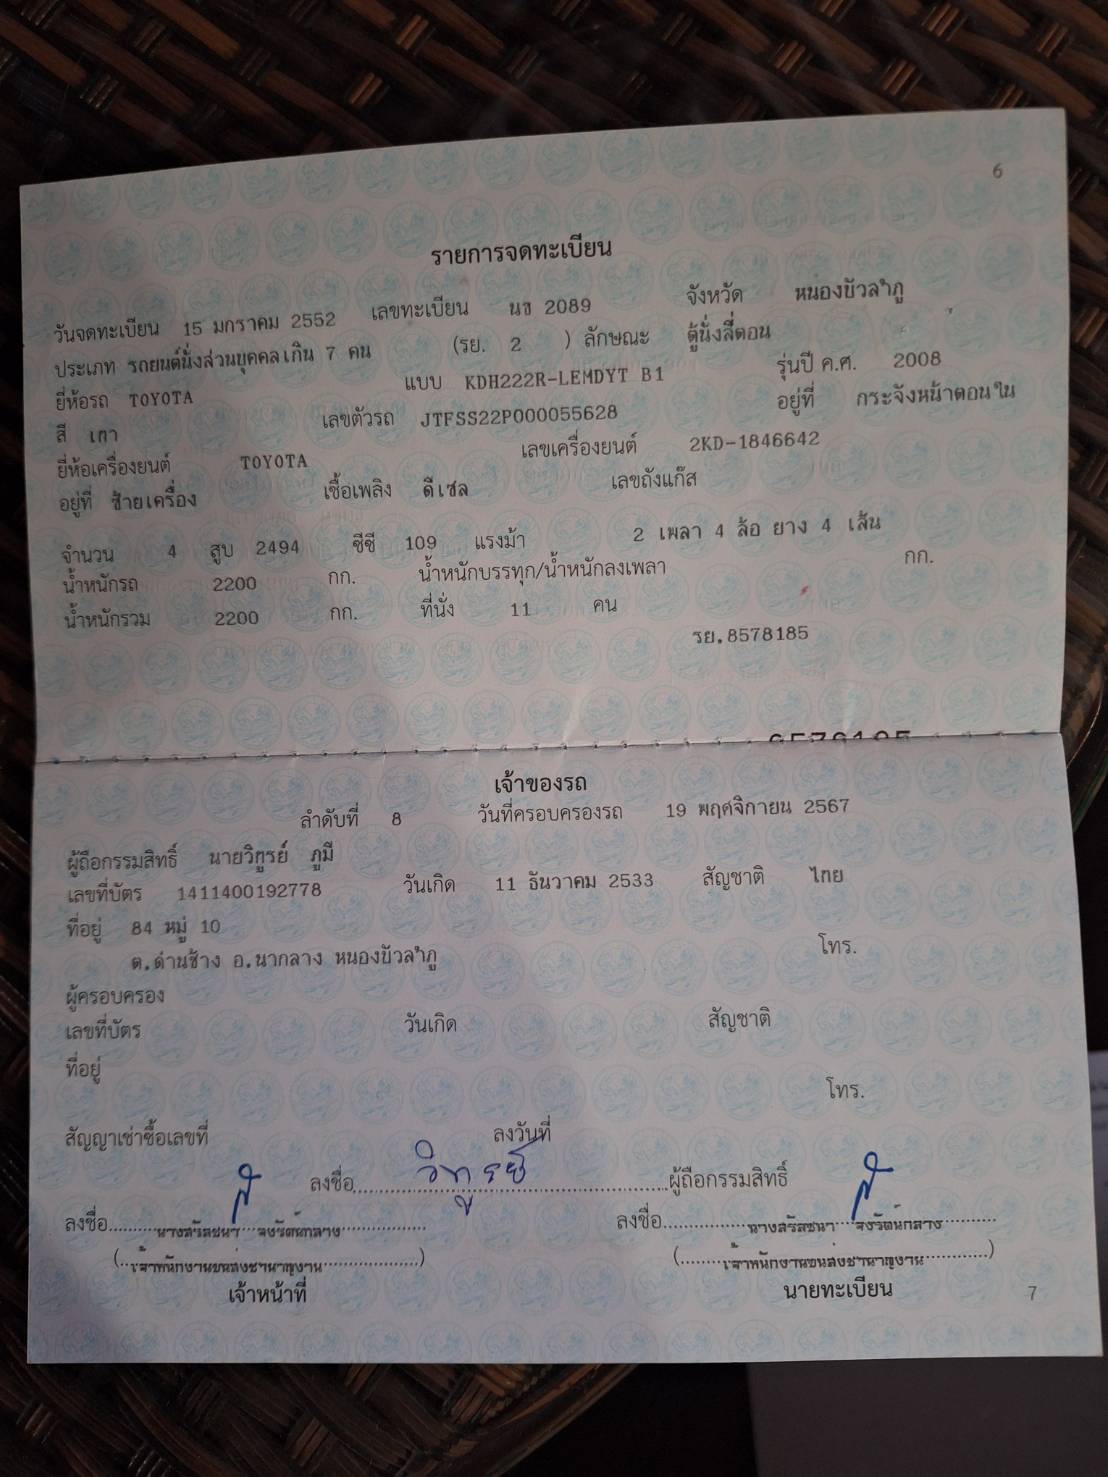 6
รายการจดทะเบียน
วันจดทะเบียน 15 มกราคม 2552 เลขทะเบียน นข 2089 จังหวัด หนองบัวลำภู
ประเภท รถยนต์นั่งส่วนบุคคลเกิน 7 คน (รย. 2 ) ลักษณะ ตู้นั่งสี่ตอน
ยี่ห้อรถ TOYOTA แบบ KDH222R-LEMDYT B1 รุ่นปี ค.ศ. 2008
สี เทา เลขตัวรถ JTFSS22P000055628 อยู่ที่ กระจังหน้าตอนใน
ยี่ห้อเครื่องยนต์ TOYOTA เลขเครื่องยนต์ 2KD-1846642
อยู่ที่ ซ้ายเครื่อง เชื้อเพลิง ดีเซล เลขถังแก๊ส
จำนวน 4 สูบ 2494 ซีซี 109 แรงม้า 2 เพลา 4 ล้อ ยาง 4 เส้น
น้ำหนักรถ 2200 กก. น้ำหนักบรรทุก/น้ำหนักลงเพลา กก.
น้ำหนักรวม 2200 กก. ที่นั่ง 11 คน
รย.8578185
เจ้าของรถ
ลำดับที่ 8 วันที่ครอบครองรถ 19 พฤศจิกายน 2567
ผู้ถือกรรมสิทธิ์ นายวิฑูรย์ ภูมี
เลขที่บัตร 1411400192778 วันเกิด 11 ธันวาคม 2533 สัญชาติ ไทย
ที่อยู่ 84 หมู่ 10
ต.ด่านช้าง อ.นากลาง หนองบัวลำภู โทร.
ผู้ครอบครอง
เลขที่บัตร วันเกิด สัญชาติ
ที่อยู่
โทร.
สัญญาเช่าซื้อเลขที่ ลงวันที่
ลงชื่อ วิฑูรย์ ผู้ถือกรรมสิทธิ์
ลงชื่อ ลงชื่อ
(เจ้าพนักงานขนส่งชำนาญงาน) (เจ้าพนักงานขนส่งชำนาญงาน)
เจ้าหน้าที่ นายทะเบียน
7